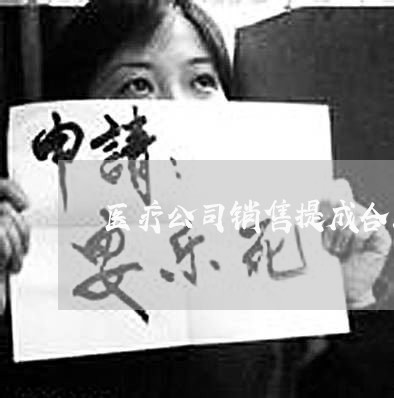 申請：
医疗公司销售提成合
安乐死